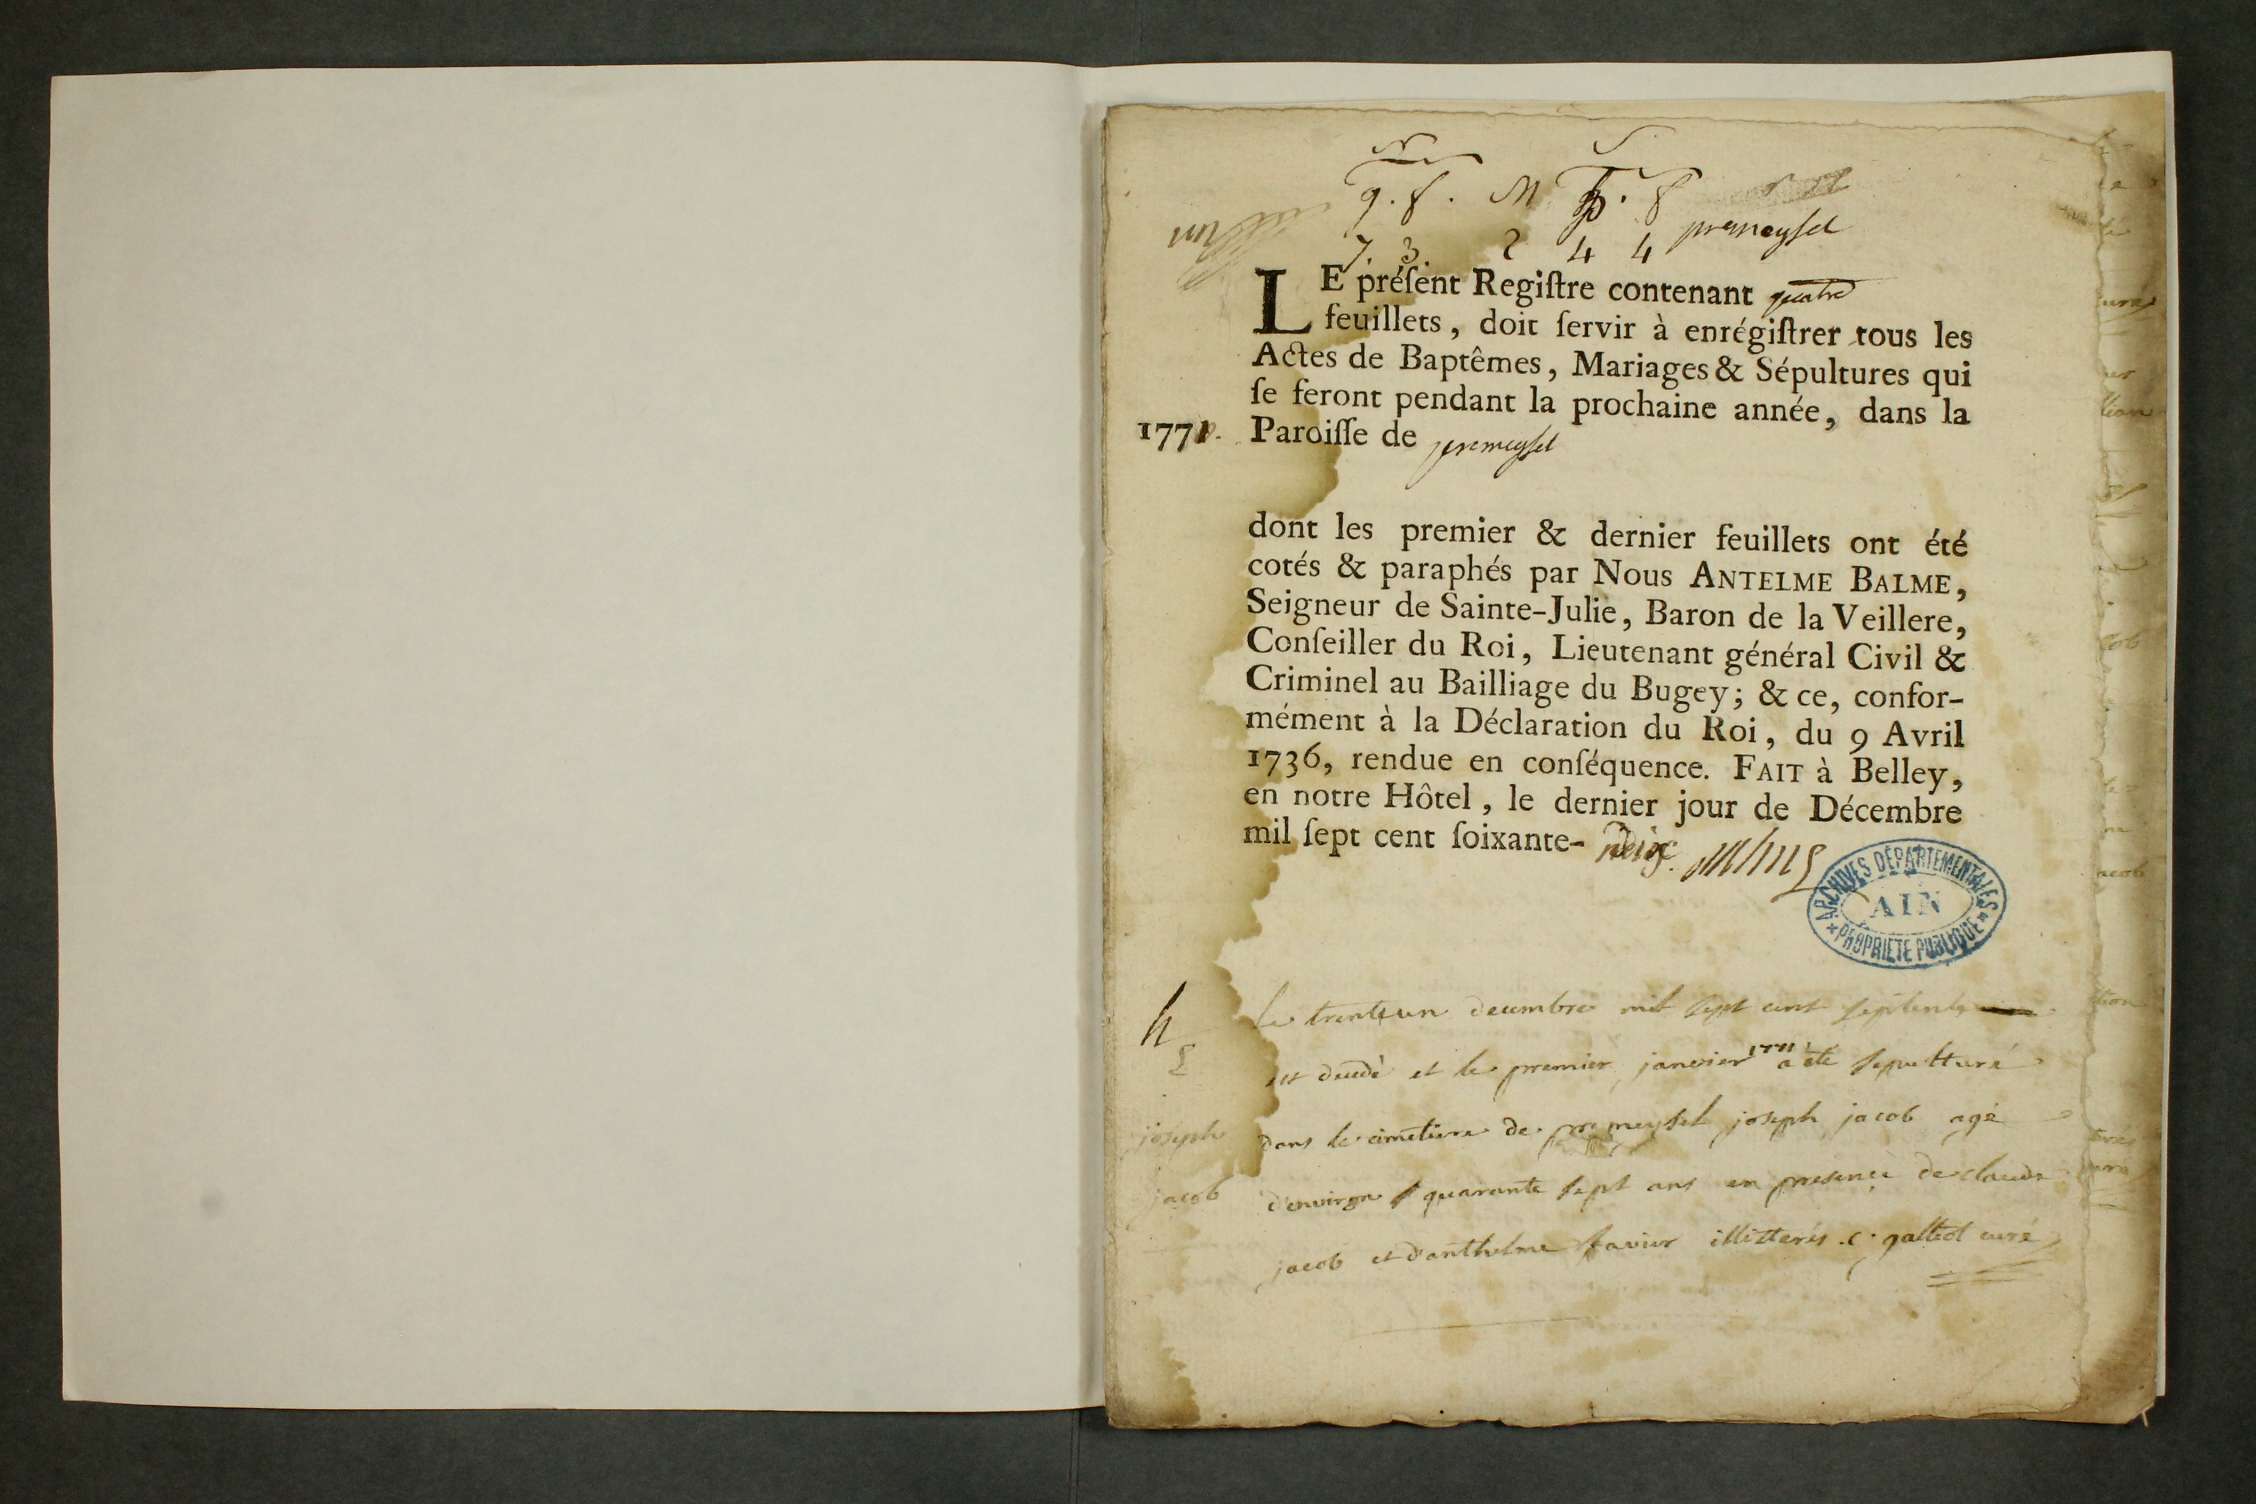 N S
g. f. M g. f
un
premeysel
7. 3. 2 4 4
LE préſent Regiſtre contenant quatre
feuillets, doit ſervir à enrégiſtrer tous les
Actes de Baptêmes, Mariages & Sépultures qui
ſe feront pendant la prochaine année, dans la
1771. Paroiſſe de premeysel
dont les premier & dernier feuillets ont été
cotés & paraphés par Nous ANTELME BALME,
Seigneur de Sainte-Julie, Baron de la Veillere,
Conſeiller du Roi, Lieutenant général Civil &
Criminel au Bailliage du Bugey; & ce, confor-
mément à la Déclaration du Roi, du 9 Avril
1736, rendue en conſéquence. FAIT à Belley,
en notre Hôtel, le dernier jour de Décembre
mil ſept cent ſoixante-dix.
ARCHIVES DÉPARTEMENTALES
AIN
PROPRIÉTÉ PUBLIQUE
le trente un decembre mil sept cent septente
est decedè et le premier janvier 1771 a ete sepulturé
joseph dans le cimetiere de premeysel joseph jacob agé
jacob d'environ quarante sept ans en presence de claude
jacob et d'anthelme favier illitterés. c. galliot curé